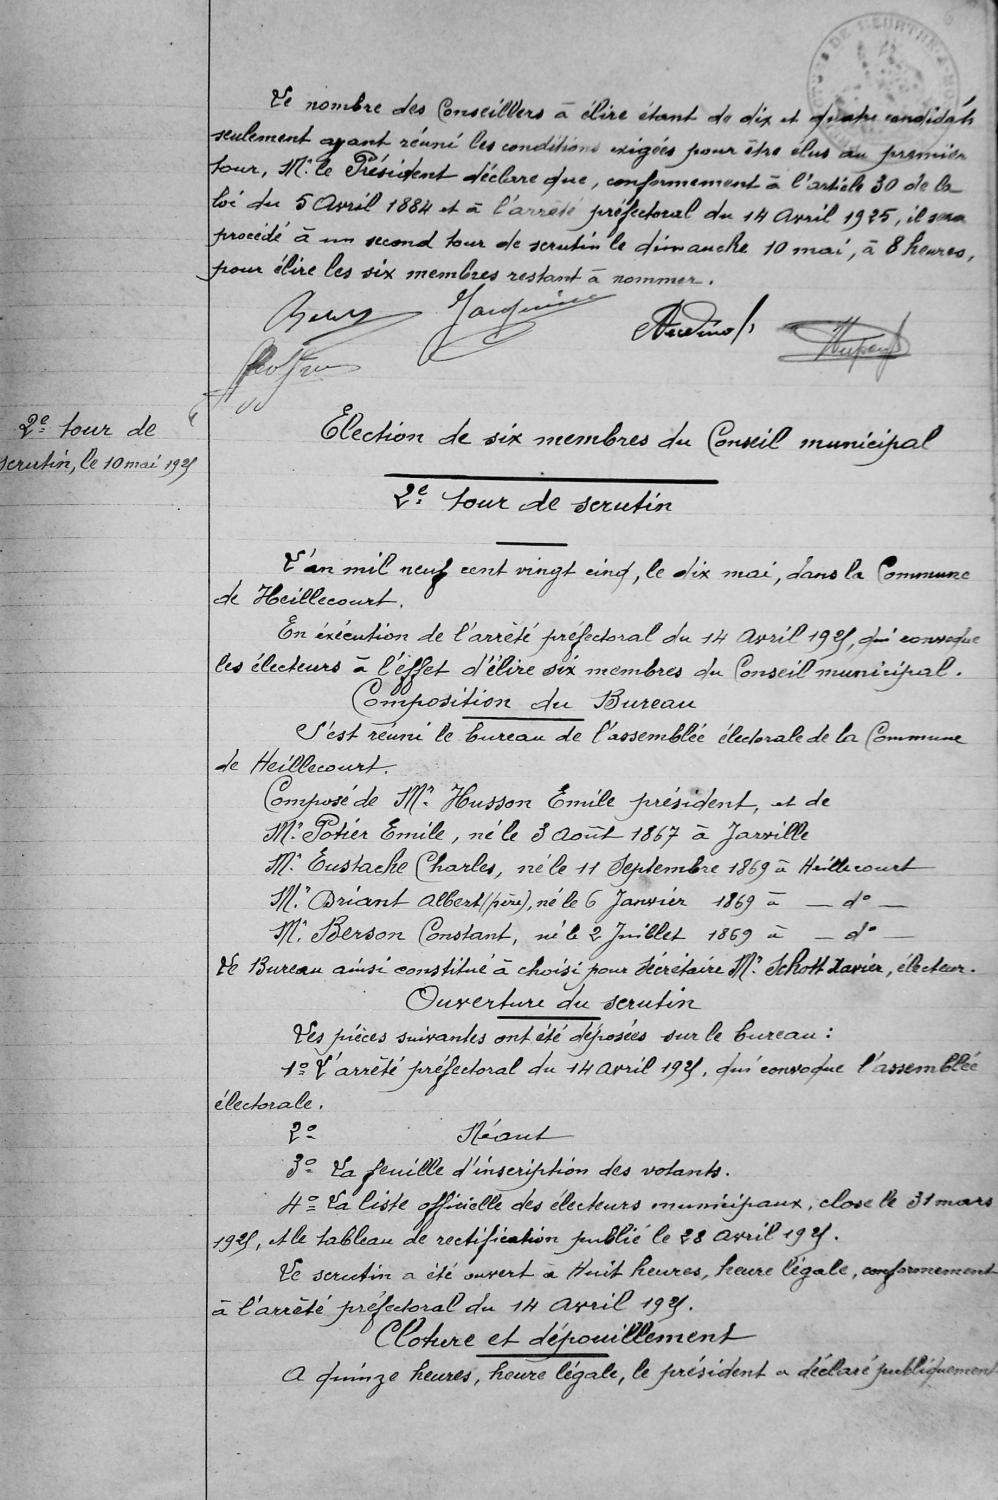 Le nombre des Conseilllers à élire étant de dix et quatre candidats
seulement ayant réuni les conditions exigées pour être élus au premier
tour, Mr. le Président déclare que, conformement à l'article 30 de la
loi du 5 Avril 1884 et à l'arrêté préfectoral du 14 Avril 1925, il sera
procédé à un second tour de scrutin le dimanche 10 mai, à 8 heures,
pour élire les six membres restant à nommer.
2e tour de
scrutin, le 10 mai 1925
Election de six membres du Conseil municipal
2e tour de scrutin
L'an mil neuf cent vingt cinq, le dix mai, dans la Commune
de Heillecourt.
En éxécution de l'arrêté préfectoral du 14 Avril 1925, qui convoque
les électeurs à l'éffet d'élire six membres du Conseil municipal.
Composition du Bureau
S'est réuni le bureau de l'assemblée électorale de la Commune
de Heillecourt.
Composé de Mr. Husson Emile président, et de
Mr. Potier Emile, né le 3 Août 1867 à Jarville
Mr. Eustache Charles, né le 11 Septembre 1869 à Heillecourt
Mr. Briant Albert (père), né le 6 Janvier 1869 à — do —
Mr. Berson Constant, né le 2 Juillet 1869 à — do —
Le Bureau ainsi constitué à choisi pour Sécrétaire Mr. Schott Xavier, électeur.
Ouverture du scrutin
Les pièces suivantes ont été déposées sur le bureau :
1o L'arrêté préfectoral du 14 avril 1925, qui convoque l'assemblée
électorale.
2o Néant
3o La feuille d'inscription des votants.
4o La liste officielle des électeurs municipaux, close le 31 mars
1925, et le tableau de rectification publié le 28 Avril 1925.
Le scrutin a été ouvert à Huit heures, heure légale, conformement
à l'arrêté préfectoral du 14 Avril 1925.
Cloture et dépouillement
A quinze heures, heure légale, le président a déclaré publiquement